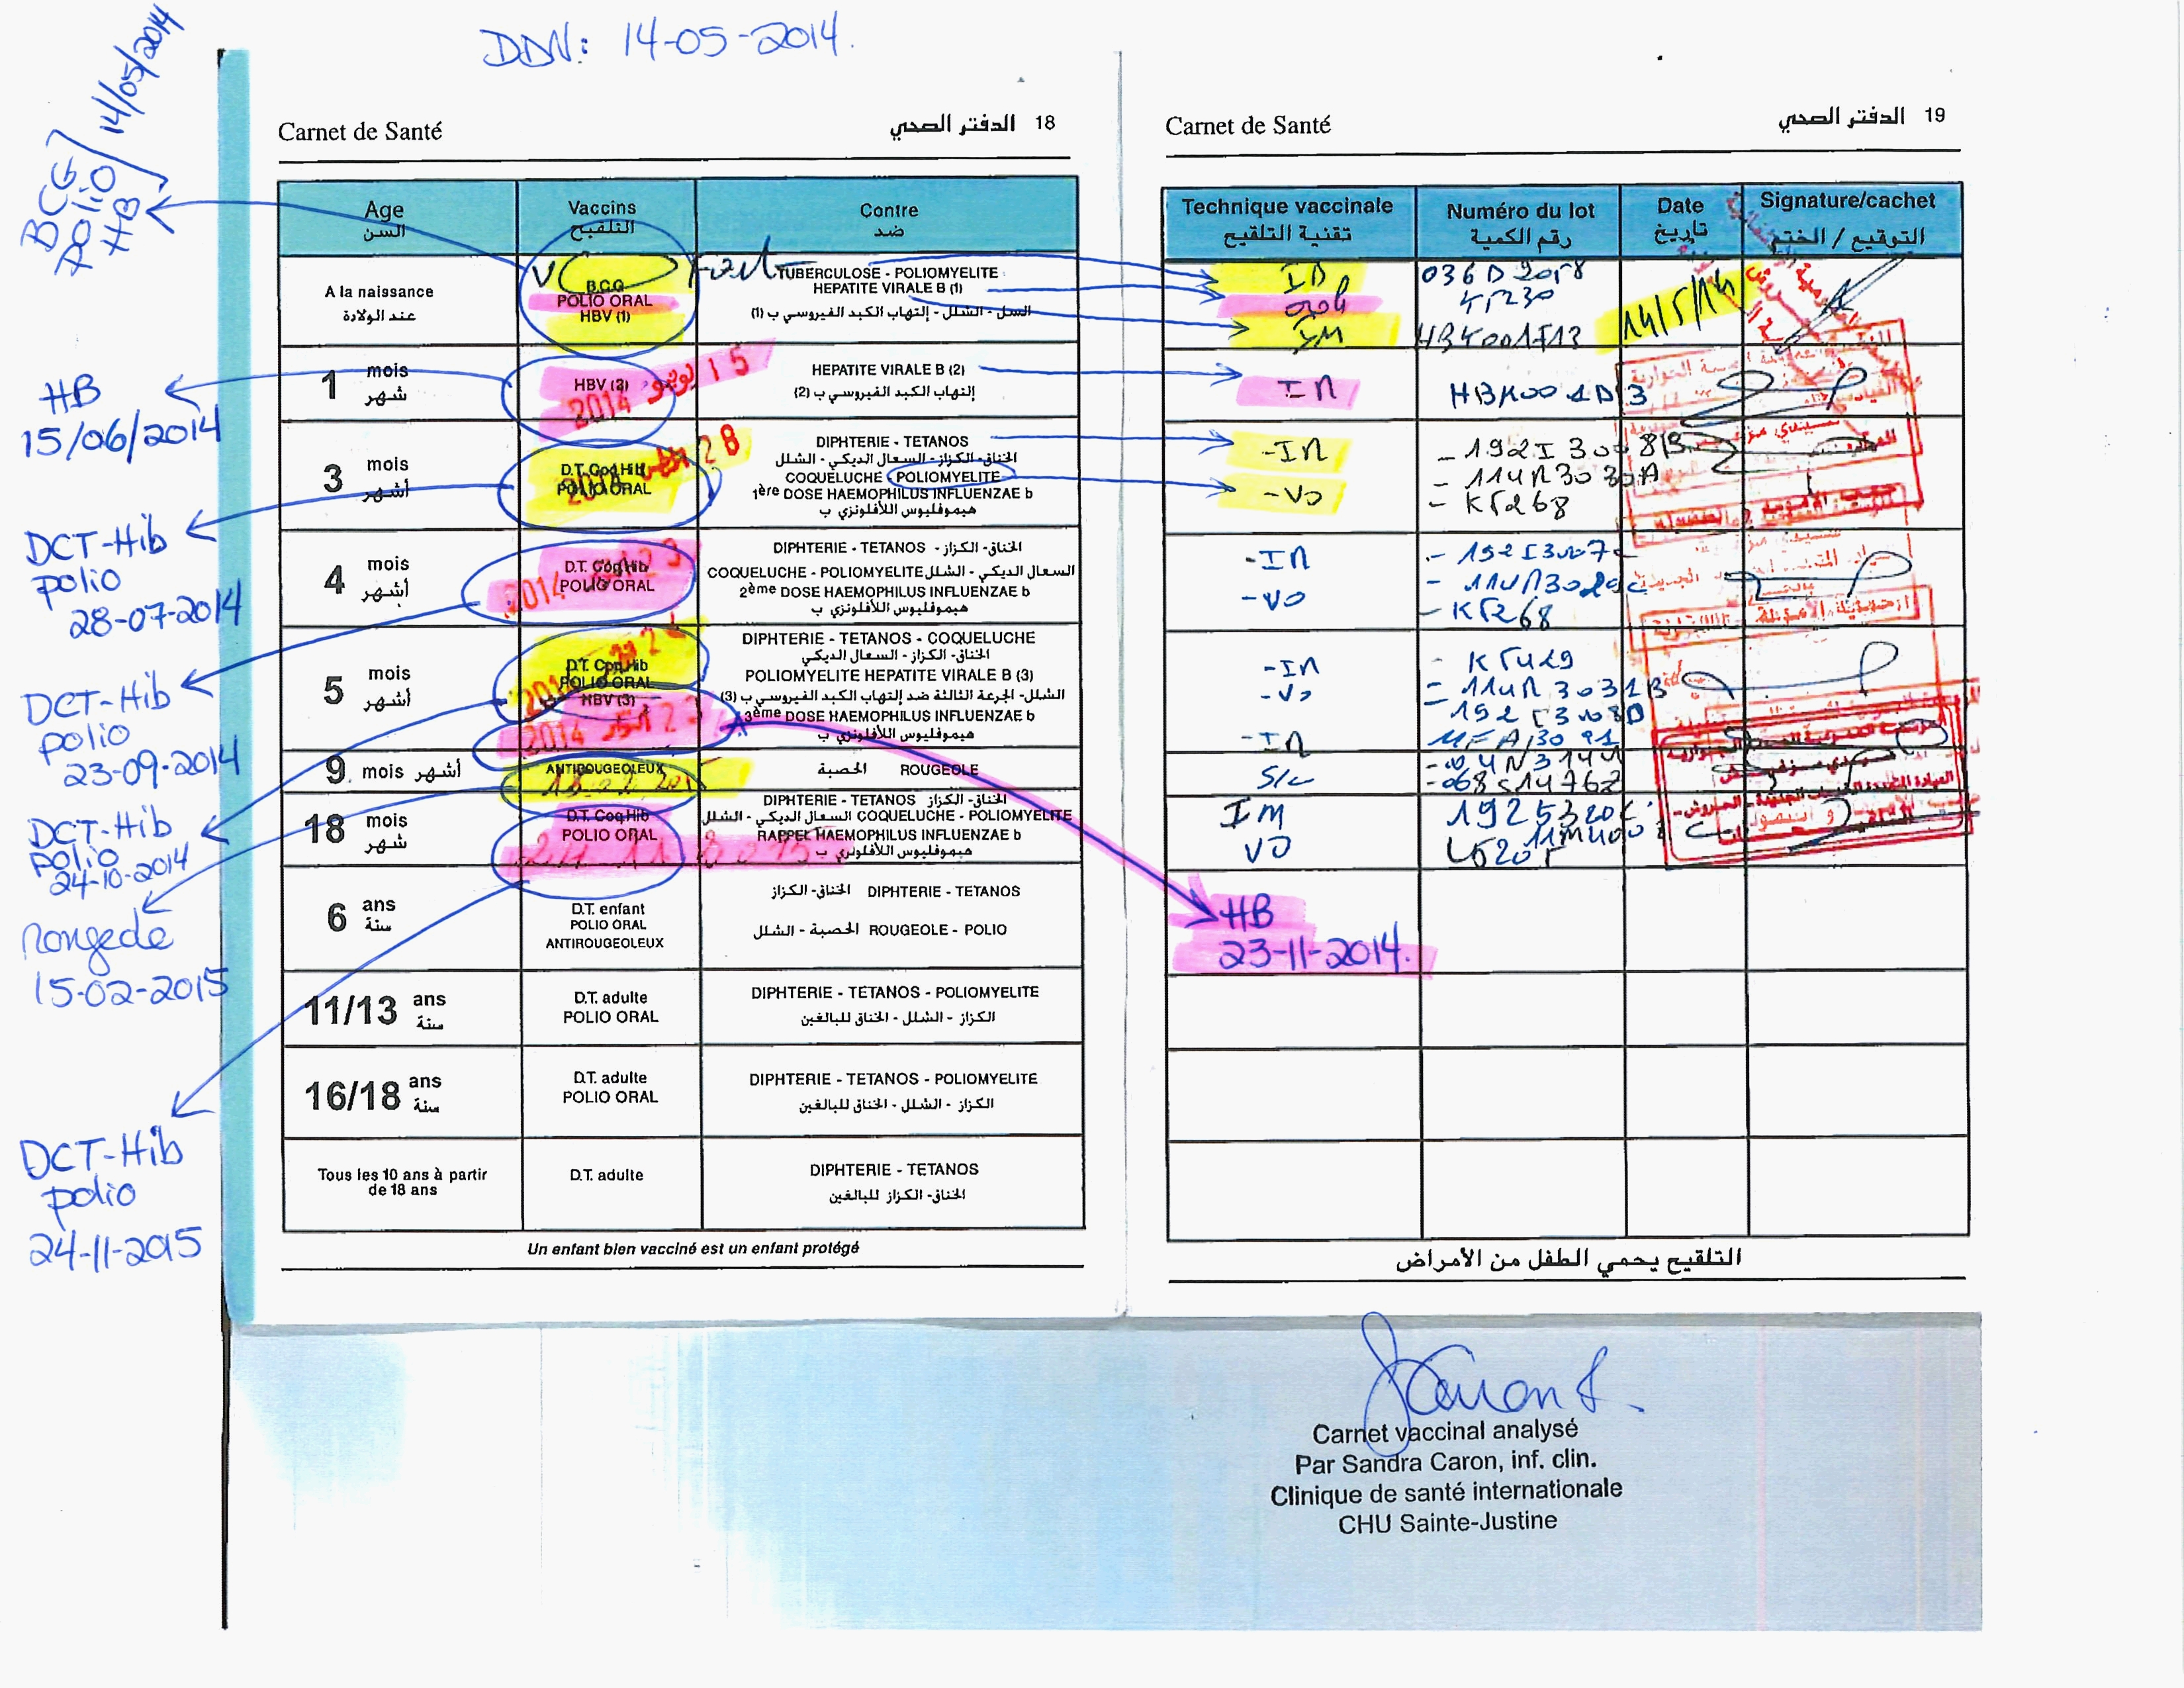 DDN: 14-05-2014.
BCG
Polio
HB
14/05/2014
HB
15/06/2014
DCT-Hib
polio
28-07-2014
DCT-Hib
polio
23-09-2014
DCT-Hib
polio
24-10-2014
15-02-2015
DCT-Hib
polio
24-11-2015
Carnet de Santé
18 الدفتر الصحي
Age
السن
Vaccins
التلقيح
Contre
ضد
A la naissance
عند الولادة
B.C.G
POLIO ORAL
HBV (1)
TUBERCULOSE - POLIOMYELITE
HEPATITE VIRALE B (1)
السل - الشلل - إلتهاب الكبد الفيروسي ب (1)
1 mois
شهر
HBV (2)
15 يونيو 2014
HEPATITE VIRALE B (2)
إلتهاب الكبد الفيروسي ب (2)
3 mois
أشهر
D.T. Coq Hib
POLIO ORAL
28 2014
DIPHTERIE - TETANOS
الخناق-الكزاز - السعال الديكي - الشلل
COQUELUCHE - POLIOMYELITE
1ère DOSE HAEMOPHILUS INFLUENZAE b
هيموفليوس اللأفلونزي ب
4 mois
أشهر
D.T. Coq Hib
POLIO ORAL
2014 23
DIPHTERIE - TETANOS - الخناق-الكزاز
COQUELUCHE - POLIOMYELITE السعال الديكي - الشلل
2ème DOSE HAEMOPHILUS INFLUENZAE b
هيموفليوس اللأفلونزي ب
5 mois
أشهر
D.T. Coq Hib
POLIO ORAL
HBV (3)
2014
DIPHTERIE - TETANOS - COQUELUCHE
الخناق-الكزاز - السعال الديكي
POLIOMYELITE HEPATITE VIRALE B (3)
الشلل- الجرعة الثالثة ضد إلتهاب الكبد الفيروسي ب (3)
3ème DOSE HAEMOPHILUS INFLUENZAE b
هيموفليوس اللأفلونزي ب
9 mois أشهر
ANTIROUGEOLEUX
ROUGEOLE الحصبة
18 mois
شهر
D.T. Coq Hib
POLIO ORAL
DIPHTERIE - TETANOS الخناق- الكزاز
COQUELUCHE - POLIOMYELITE السعال الديكي - الشلل
RAPPEL HAEMOPHILUS INFLUENZAE b
هيموفليوس اللأفلونزي ب
6 ans
سنة
D.T. enfant
POLIO ORAL
ANTIROUGEOLEUX
DIPHTERIE - TETANOS الخناق-الكزاز
ROUGEOLE - POLIO الحصبة - الشلل
11/13 ans
سنة
D.T. adulte
POLIO ORAL
DIPHTERIE - TETANOS - POLIOMYELITE
الكزاز - الشلل - الخناق للبالغين
16/18 ans
سنة
D.T. adulte
POLIO ORAL
DIPHTERIE - TETANOS - POLIOMYELITE
الكزاز - الشلل - الخناق للبالغين
Tous les 10 ans à partir
de 18 ans
D.T. adulte
DIPHTERIE - TETANOS
الخناق- الكزاز للبالغين
Un enfant bien vacciné est un enfant protégé
Carnet de Santé
19 الدفتر الصحي
Technique vaccinale
تقنية التلقيح
Numéro du lot
رقم الكمية
Date
تاريخ
Signature/cachet
التوقيع / الختم
ID
IM
14/5/14
IM
-IM
-VO
- KT268
-IM
-VO
- KT268
-IM
-VO
-IM
S/C
IM
VO
HB
23-11-2014.
التلقيح يحمي الطفل من الأمراض
Carnet vaccinal analysé
Par Sandra Caron, inf. clin.
Clinique de santé internationale
CHU Sainte-Justine